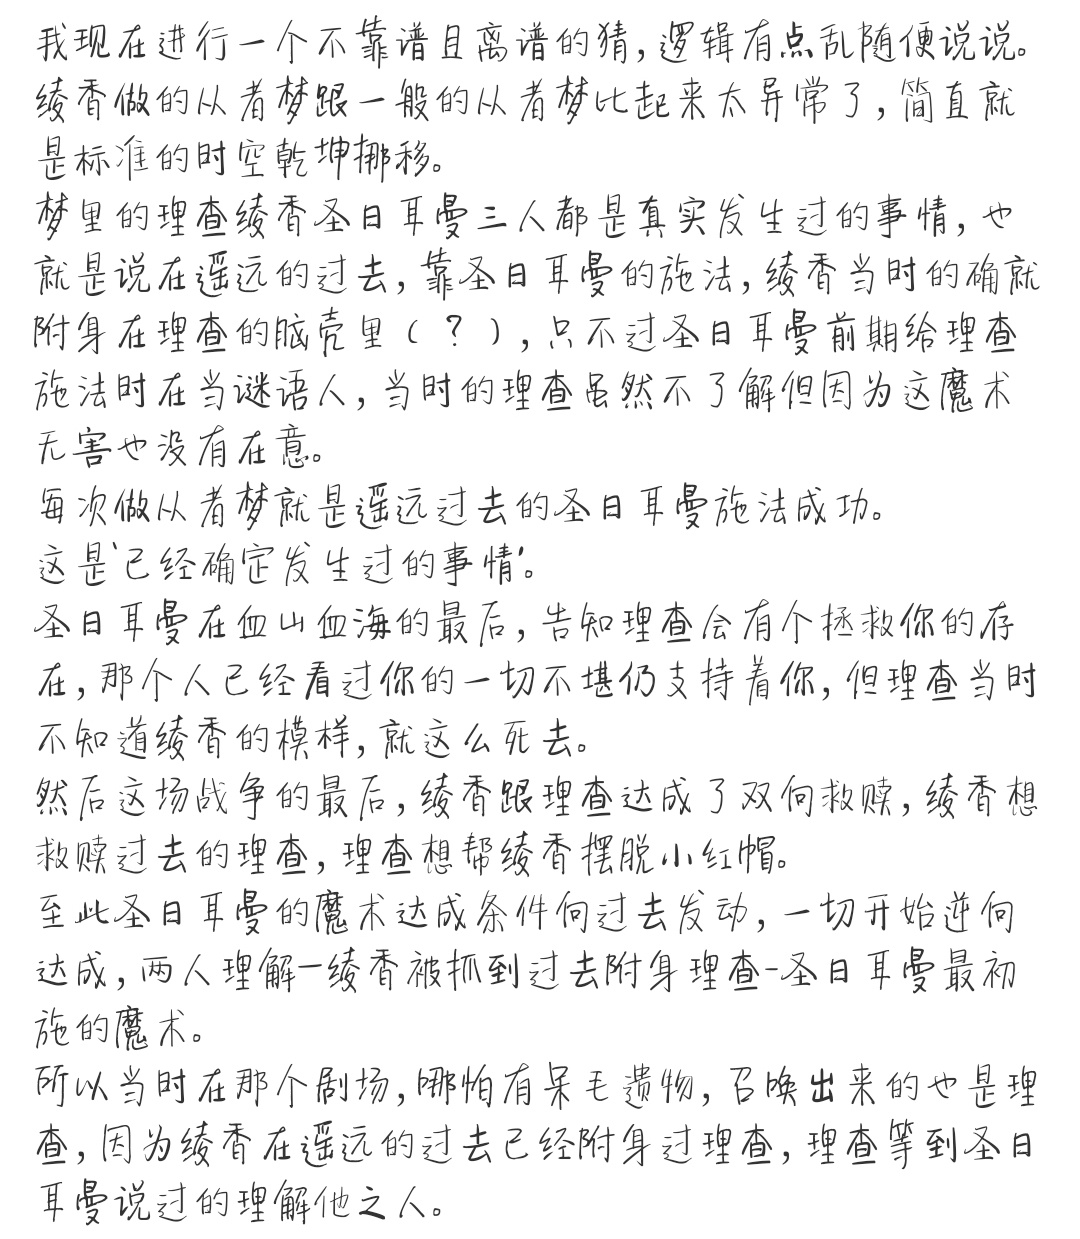 我现在进行一个不靠谱且离谱的猜,逻辑有点乱随便说说。
绫香做的从者梦跟一般的从者梦比起来太异常了,简直就
是标准的时空乾坤挪移。
梦里的理查绫香圣日耳曼三人都是真实发生过的事情,也
就是说在遥远的过去,靠圣日耳曼的施法,绫香当时的确就
附身在理查的脑壳里(?),只不过圣日耳曼前期给理查
施法时在当谜语人,当时的理查虽然不了解但因为这魔术
无害也没有在意。
每次做从者梦就是遥远过去的圣日耳曼施法成功。
这是‘已经确定发生过的事情’。
圣日耳曼在血山血海的最后,告知理查会有个拯救你的存
在,那个人已经看过你的一切不堪仍支持着你,但理查当时
不知道绫香的模样,就这么死去。
然后这场战争的最后,绫香跟理查达成了双向救赎,绫香想
救赎过去的理查,理查想帮绫香摆脱小红帽。
至此圣日耳曼的魔术达成条件向过去发动,一切开始逆向
达成,两人理解—绫香被抓到过去附身理查-圣日耳曼最初
施的魔术。
所以当时在那个剧场,哪怕有呆毛遗物,召唤出来的也是理
查,因为绫香在遥远的过去已经附身过理查,理查等到圣日
耳曼说过的理解他之人。